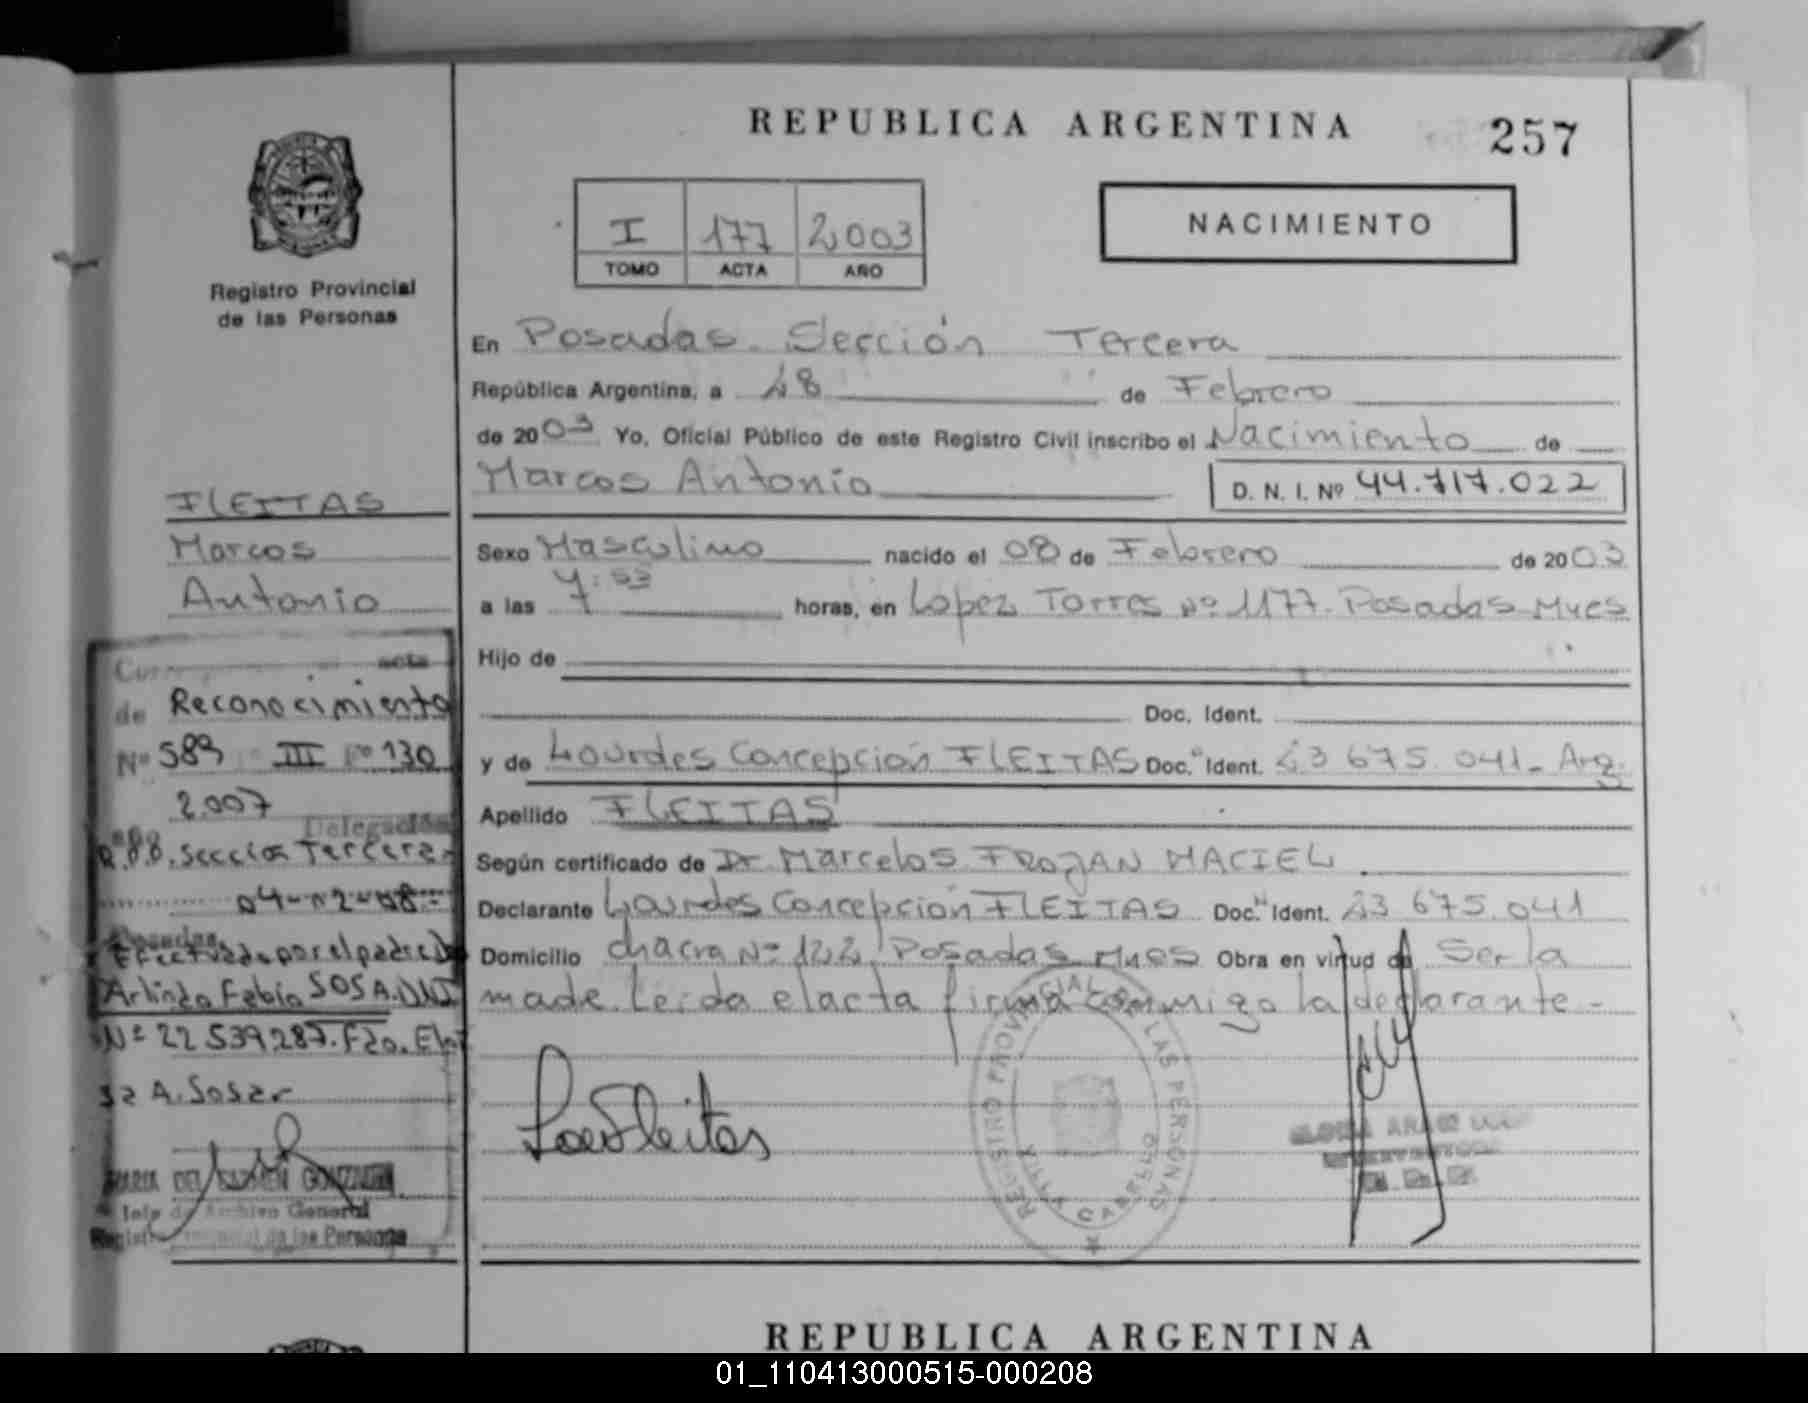 REPUBLICA ARGENTINA
257
I 177 2003
TOMO ACTA AÑO
NACIMIENTO
Registro Provincial
de las Personas
En Posadas. Sección Tercera
República Argentina, a 28 de Febrero
de 2003 Yo, Oficial Público de este Registro Civil inscribo el Nacimiento de
Marcos Antonio D. N. I. Nº 44.717.022
Sexo Masculino nacido el 08 de Febrero de 2003
a las 7:53 horas, en Lopez Torres Nº 1177. Posadas Mnes
Hijo de
Doc. Ident.
y de Lourdes Concepción FLEITAS Doc. Ident. 23 675.041 - Arg.
Apellido FLEITAS
Según certificado de Dr. Marcelos FROJAN MACIEL
Declarante Lourdes Concepción FLEITAS Doc. Ident. 23 675.041
Domicilio chacra Nº 122. Posadas Mnes Obra en virtud de Ser la
made. Leida el acta firma conmigo la declarante -
FLEITAS
Marcos
Antonio
acta
de Reconocimiento
Nº 589 III Fº 130
2.007
Delegación
Sección Tercera
04-12-08
Posadas,
Efectuada por el padre
Arlindo Fabio SOSA. DNI
Nº 22 539.287. Fdo.
A. Sosa
MARIA DEL CARMEN GONZALEZ
Jefe de Archivo General
Registro Provincial de las Personas
REGISTRO PROVINCIAL DE LAS PERSONAS
VILLA CABELLO
REPUBLICA ARGENTINA
01_110413000515-000208